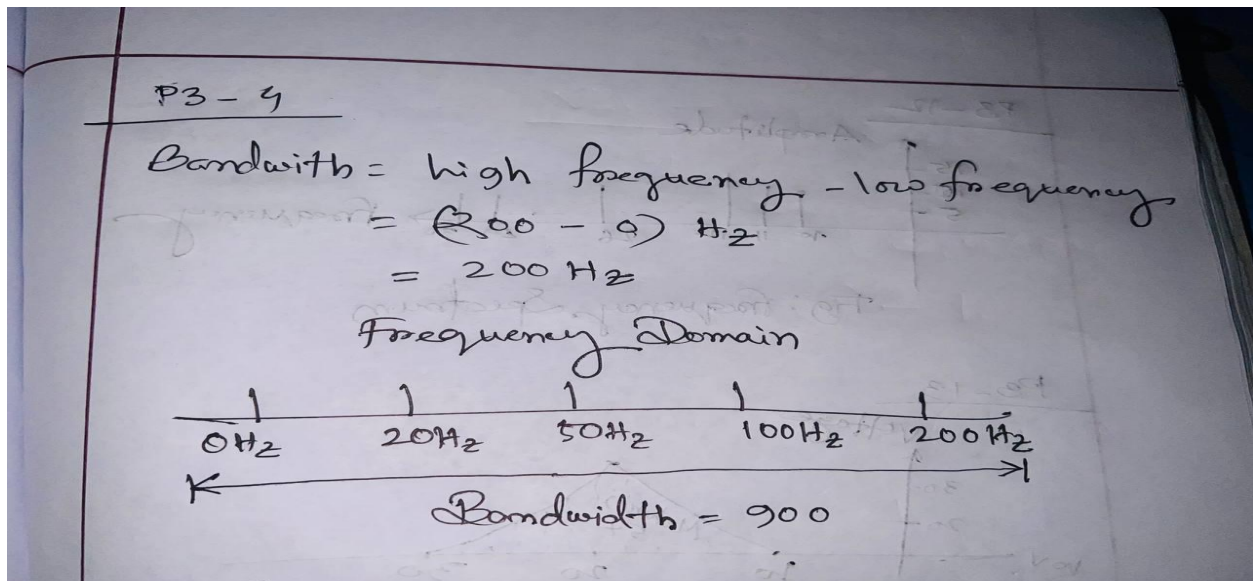 P3-4
Bandwith = high frequency - low frequency
= (200 - 0) Hz
= 200 Hz
Frequency Domain
0Hz 20Hz 50Hz 100Hz 200Hz
Bandwidth = 900